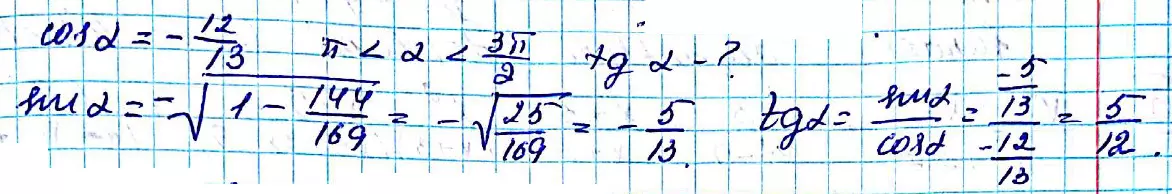 cos α = - 12/13   π < α < 3π/2   tg α - ?
sin α = - √(1 - 144/169) = - √(25/169) = - 5/13.   tg α = sin α / cos α = (-5/13) / (-12/13) = 5/12.